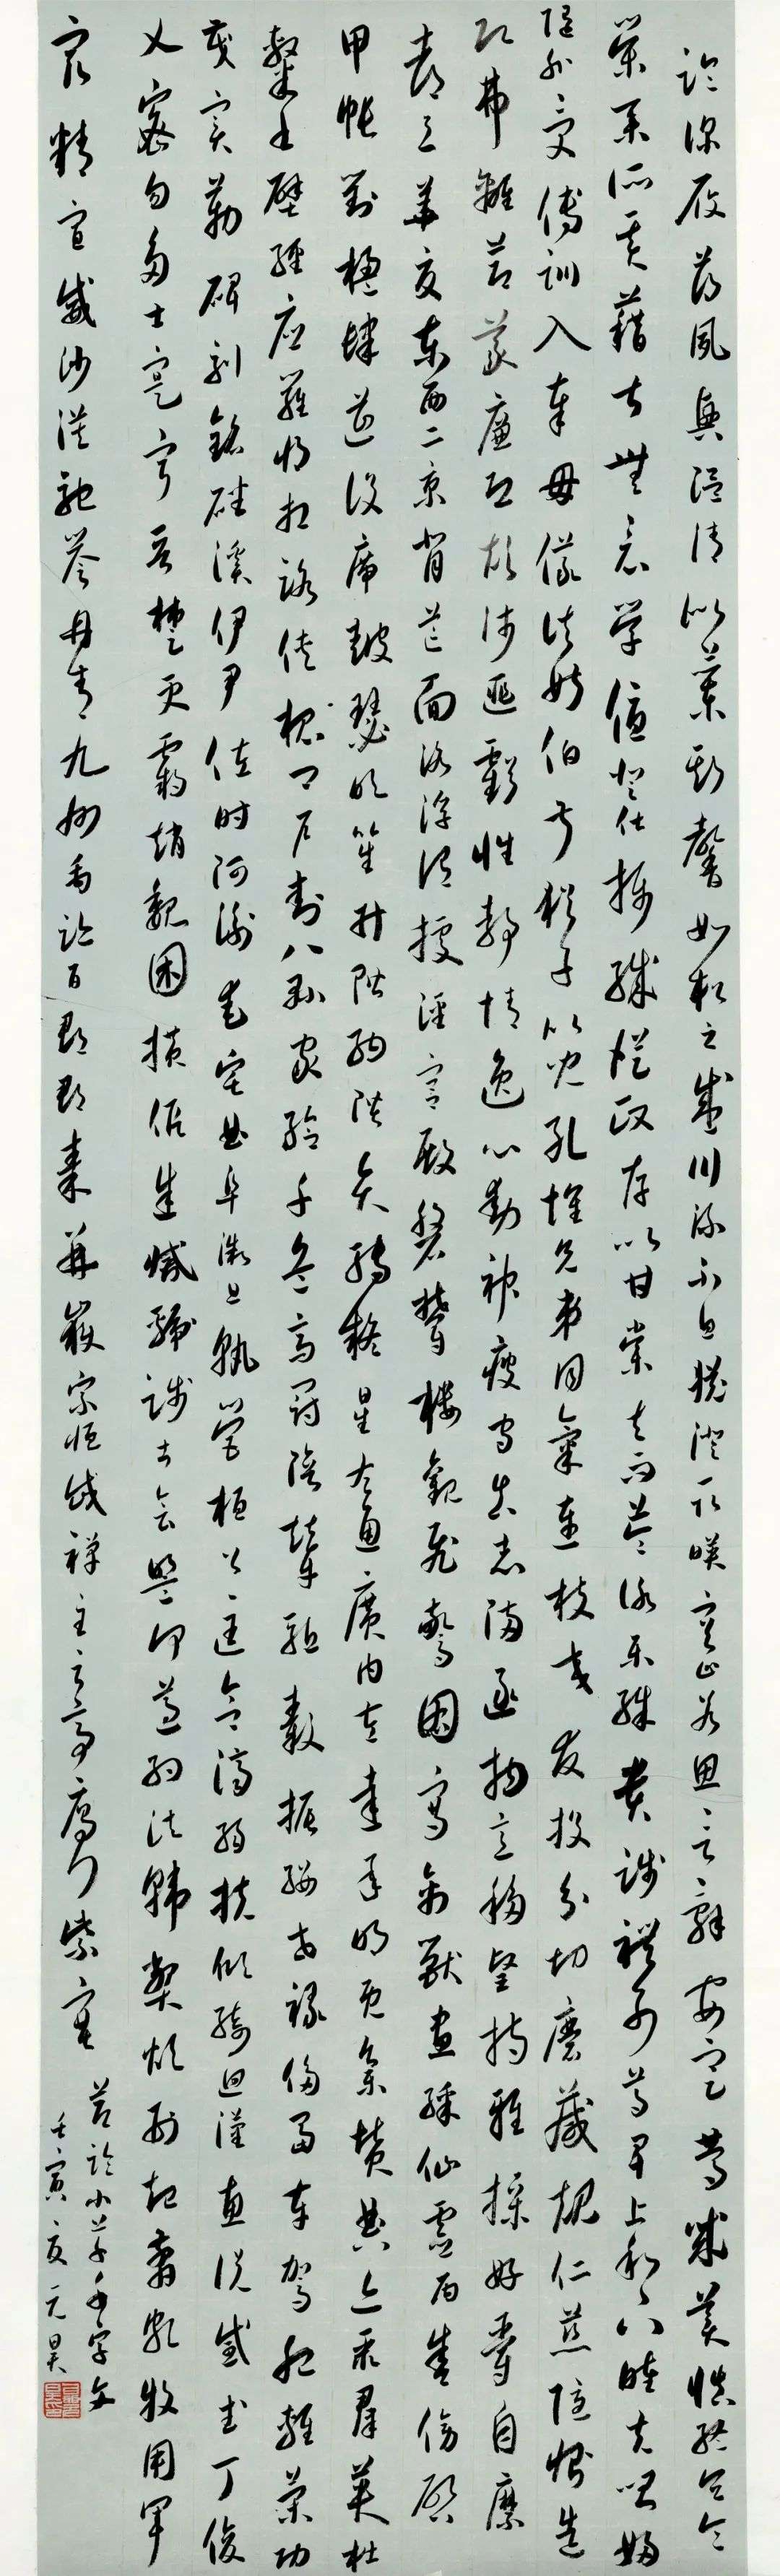 臨深履薄夙興温清似蘭斯馨如松之盛川流不息淵澄取暎容止若思言辭安定篤誠美慎終宜令
榮業所基藉甚無竟學優登仕攝職從政存以甘棠去而益詠樂殊貴賤禮別尊卑上和下睦夫唱婦
隨外受傅訓入奉母儀諸姑伯叔猶子比兒孔懷兄弟同氣連枝交友投分切磨箴規仁慈隱惻造
次弗離節義廉退顛沛匪虧性靜情逸心動神疲守真志滿逐物意移堅持雅操好爵自縻
都邑華夏東西二京背芒面洛浮渭據涇宮殿盤鬱樓觀飛驚圖寫禽獸畫彩仙靈丙舍傍啓
甲帳對楹肆筵設席鼓瑟吹笙升階納陛弁轉疑星右通廣内左達承明既集墳典亦聚群英杜
稾書壁經府羅將相路俠槐卿户封八縣家給千兵高冠陪輦驅轂振纓世禄侈富車駕肥輕策功
茂實勒碑刻銘磻溪伊尹佐時阿衡奄宅曲阜微旦孰營桓公匡合濟弱扶傾綺迴漢惠說感武丁俊
乂密勿多士寔寧晉楚更霸趙魏困橫假途滅虢踐土會盟何遵約法韓弊煩刑起翦頗牧用軍
最精宣威沙漠馳譽丹青九州禹跡百郡秦并嶽宗恒岱禪主云亭雁門紫塞
節臨小草千字文
壬寅夏元昊